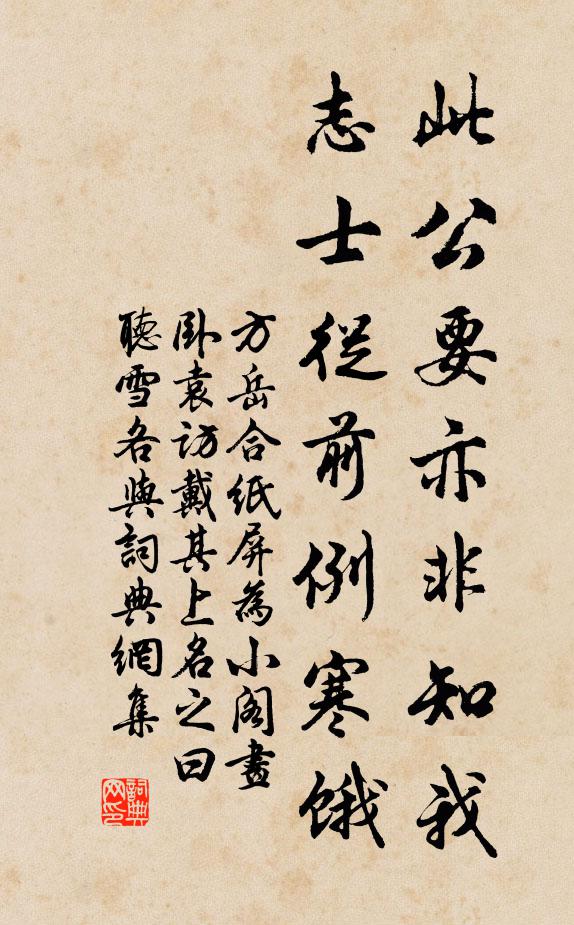 此公要亦非知我
志士從前例寒餓
方岳合紙屏為小閣畫
卧袁訪戴其上名之曰
聽雪各與詞典網集
詞典網印